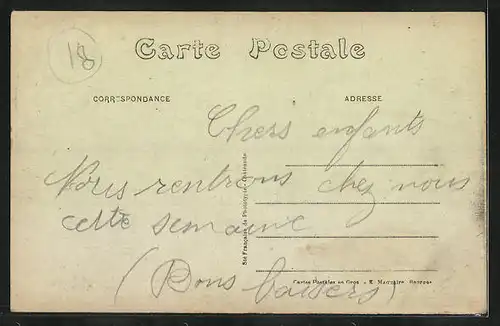 18
Carte Postale
CORRESPONDANCE
ADRESSE
Chers enfants
Nous rentrons chez nous
cette semaine
(Bons baisers)
Sté Française de Photographie
Cartes Postales en Gros